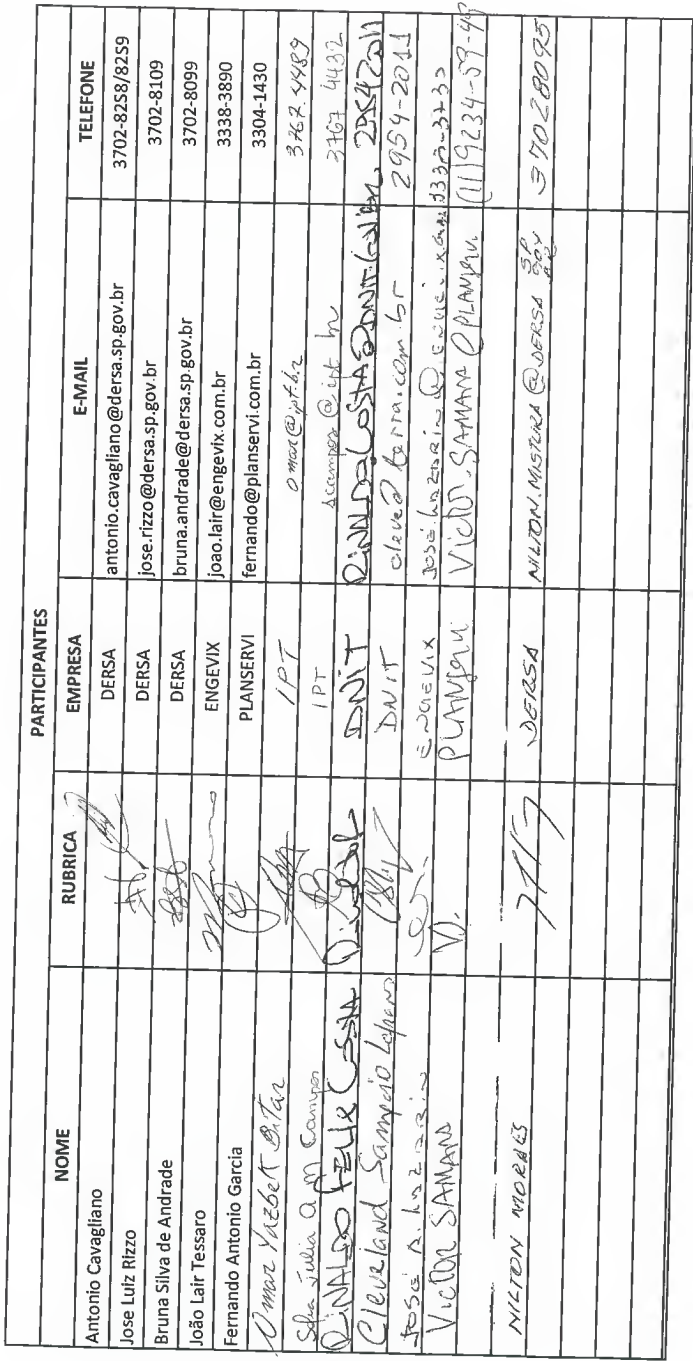 PARTICIPANTES
NOME RUBRICA EMPRESA E-MAIL TELEFONE
Antonio Cavagliano DERSA antonio.cavagliano@dersa.sp.gov.br 3702-8258/8259
Jose Luiz Rizzo DERSA jose.rizzo@dersa.sp.gov.br 3702-8109
Bruna Silva de Andrade DERSA bruna.andrade@dersa.sp.gov.br 3702-8099
João Lair Tessaro ENGEVIX joao.lair@engevix.com.br 3338-3890
Fernando Antonio Garcia PLANSERVI fernando@planservi.com.br 3304-1430
Omar Yazbek Bitar IPT omar@ipt.br 3767.4489
Julia Campos IPT scampos@ipt.br 3767 4432
RINALDO FELIX COSTA DNIT RINALDO.COSTA@DNIT.GOV.BR 29542011
Cleveland Sampaio DNIT 2954-2011
José A. Lazzarin ENGEVIX
Victor SAMANA PLANSERVI Victor.SAMANA@PLANSERVI (11)9234-59-48
NILTON MORAES DERSA NILTON.MISTURA@DERSA SP GOV BR 37028095